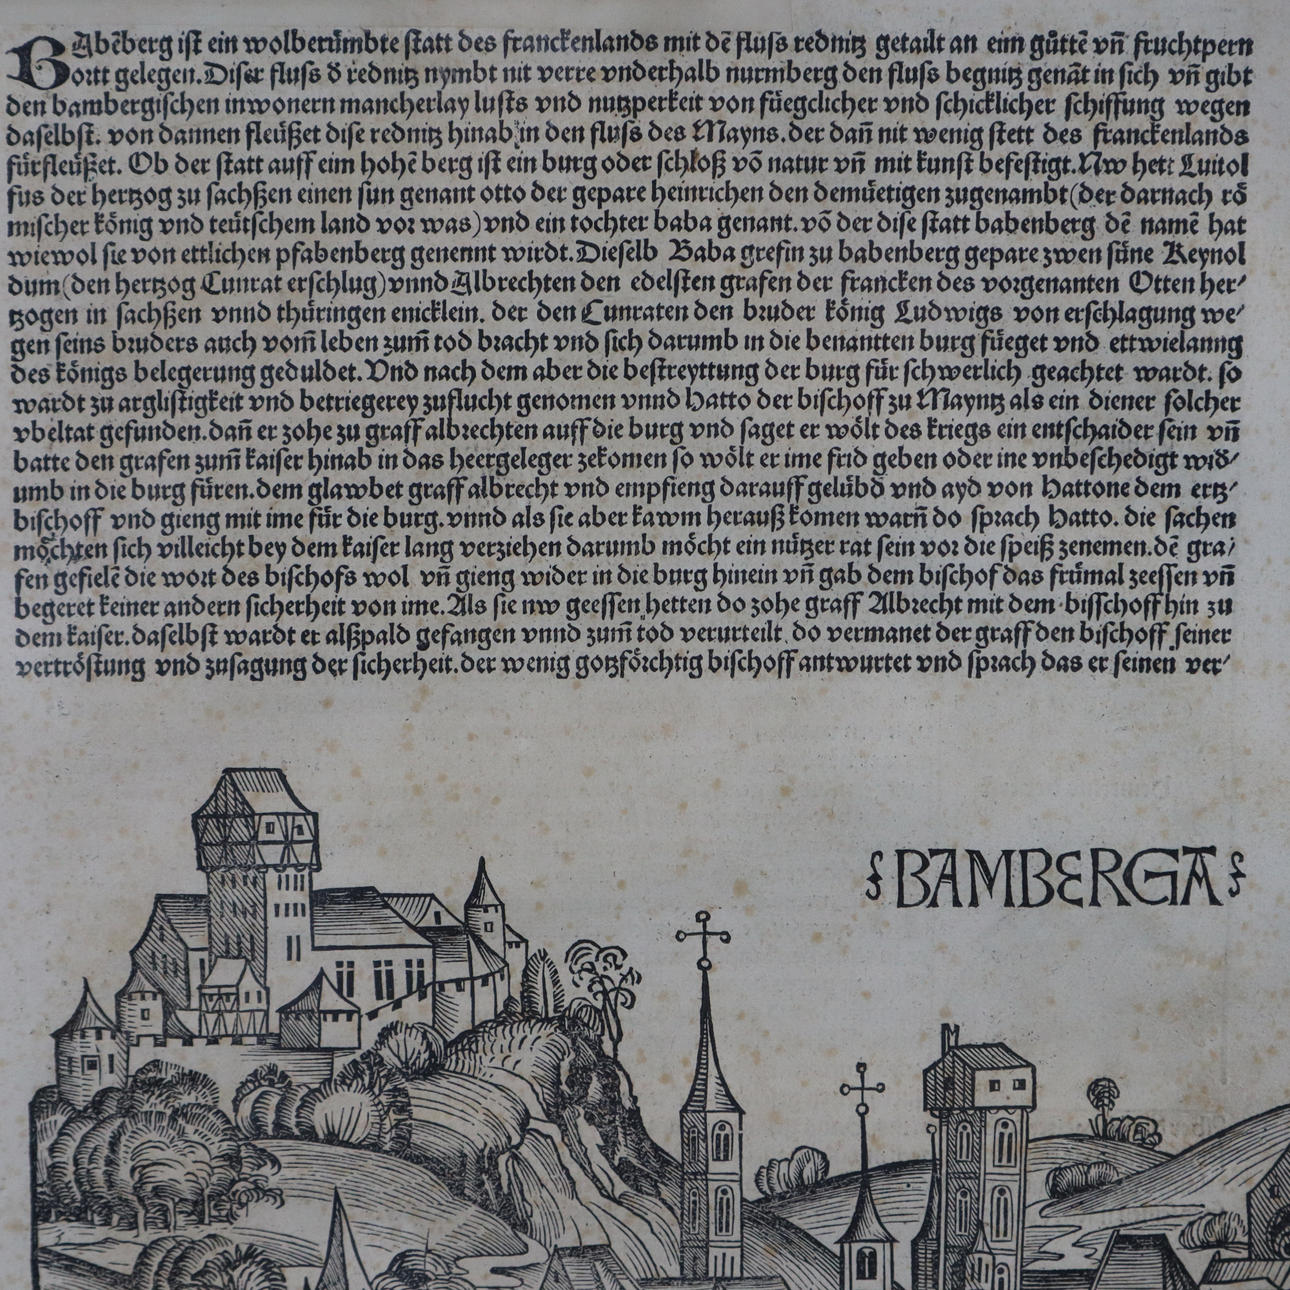 BAbēberg ist ein wolberůmbte statt des franckenlands mit dē fluss rednitz getailt an eim gůttē vñ fruchtpern
ortt gelegen. Diser fluss d̄ rednitz nymbt nit verre vnderhalb nurmberg den fluss begnitz genāt in sich vñ gibt
den bambergischen inwonern mancherlay lusts vnd nutzperkeit von füegclicher vnd schicklicher schiffung wegen
daselbst. von dannen fleüßet dise rednitz hinab in den fluss des Mayns. der dañ nit wenig stett des franckenlands
fürfleüßet. Ob der statt auff eim hohē berg ist ein burg oder schloß vō natur vñ mit kunst befestigt. Nw hett Luitol
fus der hertzog zu sachßen einen sun genant otto der gepare heinrichen den demüetigen zugenambt (der darnach rö
mischer könig vnd teütschem land vor was) vnd ein tochter baba genant. vō der dise statt babenberg dē namē hat
wiewol sie von ettlichen pfabenberg genennt wirdt. Dieselb Baba grefin zu babenberg gepare zwen süne Reynol
dum (den hertzog Cunrat erschlug) vnnd Albrechten den edelsten grafen der francken des vorgenanten Otten her⸗
tzogen in sachßen vnnd thüringen enicklein. der den Cunraten den bruder könig Ludwigs von erschlagung we⸗
gen seins bruders auch vom̄ leben zum̄ tod bracht vnd sich darumb in die benantten burg füeget vnd ettwielanng
des königs belegerung geduldet. Vnd nach dem aber die bestreyttung der burg für schwerlich geachtet wardt. so
wardt zu arglistigkeit vnd betriegerey zuflucht genomen vnnd Hatto der bischoff zu Mayntz als ein diener solcher
vbeltat gefunden. dañ er zohe zu graff albrechten auff die burg vnd saget er wölt des kriegs ein entschaider sein vñ
batte den grafen zum̄ kaiser hinab in das heergeleger zekomen so wölt er ime frid geben oder ine vnbeschedigt wid⸗
umb in die burg füren. dem glawbet graff albrecht vnd empfieng darauff gelübd vnd ayd von Hattone dem ertz⸗
bischoff vnd gieng mit ime für die burg. vnnd als sie aber kawm herauß komen warñ do sprach Hatto. die sachen
möchten sich villeicht bey dem kaiser lang verziehen darumb möcht ein nützer rat sein vor die speiß zenemen. dē gra⸗
fen gefielē die wort des bischofs wol vñ gieng wider in die burg hinein vñ gab dem bischof das frümal zeessen vñ
begeret keiner andern sicherheit von ime. Als sie nw geessen hetten do zohe graff Albrecht mit dem bisschoff hin zu
dem kaiser. daselbst wardt er alßpald gefangen vnnd zum̄ tod verurteilt. do vermanet der graff den bischoff seiner
vertröstung vnd zusagung der sicherheit. der wenig gotzförchtig bischoff antwurtet vnd sprach das er seinen ver⸗
BAMBERGA